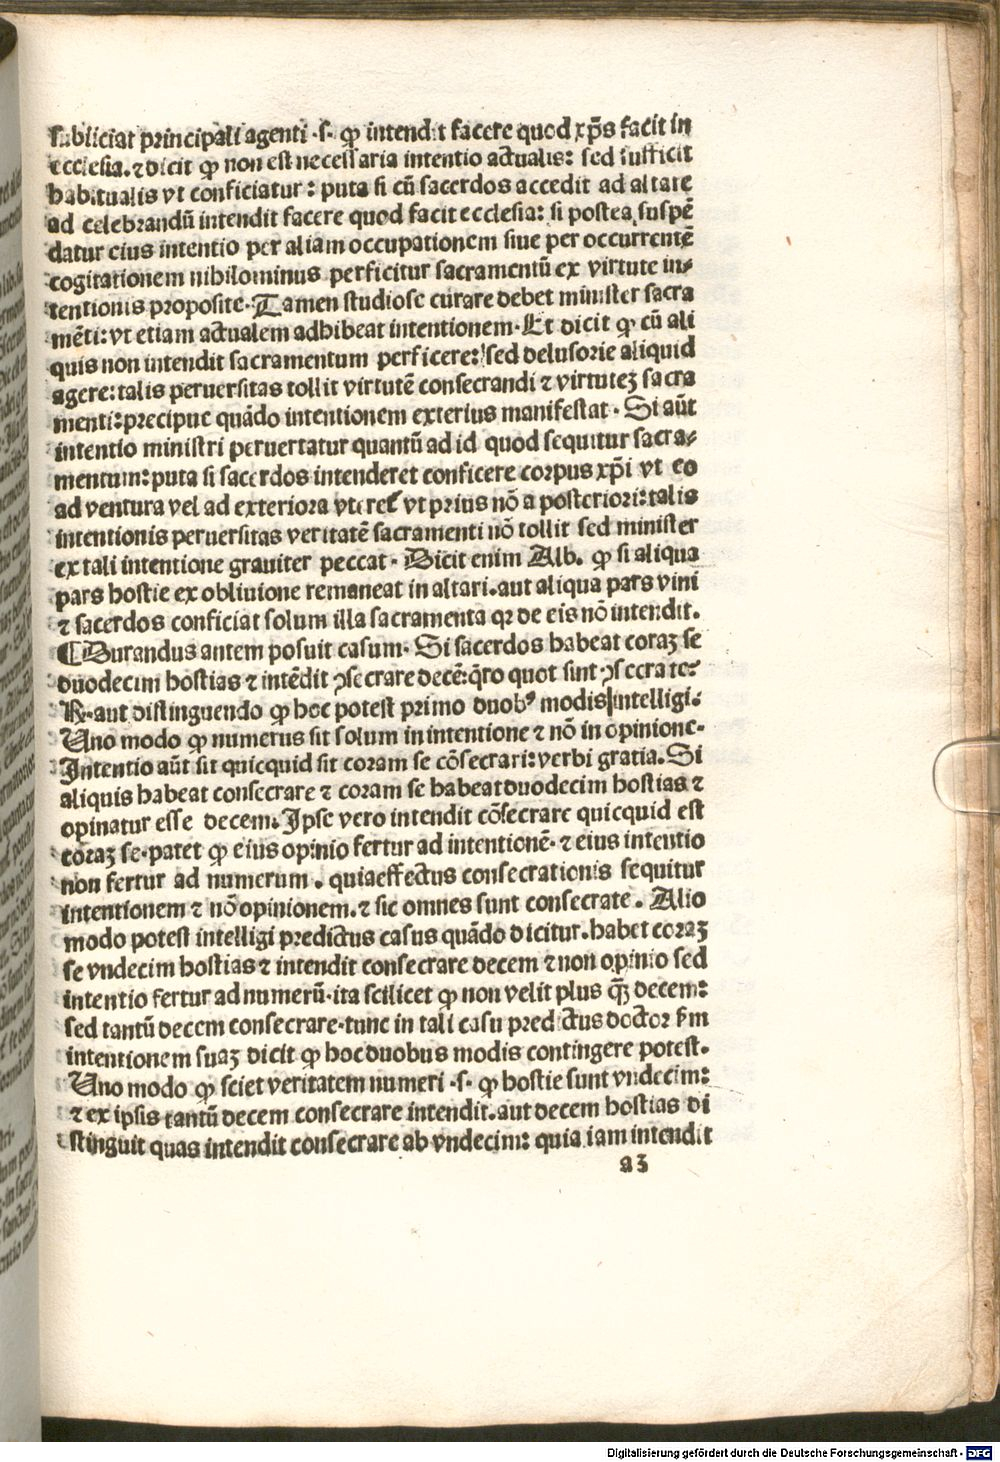 subiiciat principali agenti ·s· ꝙ intendit facere quod xp̄s facit in
ecclesia. ⁊ dicit ꝙ non est necessaria intentio actualis: sed sufficit
habitualis vt conficiatur: puta si cū sacerdos accedit ad altare
ad celebrandū intendit facere quod facit ecclesia: si postea suspē
datur eius intentio per aliam occupationem siue per occurrentē
cogitationem nihilominus perficitur sacramentū ex virtute in⸗
tentionis proposite. Tamen studiose curare debet minister sacra
mēti: vt etiam actualem adhibeat intentionem. Et dicit ꝙ cū ali
quis non intendit sacramentum perficere: sed delusorie aliquid
agere: talis peruersitas tollit virtutē consecrandi ⁊ virtutez sacra
menti: precipue quādo intentionem exterius manifestat. Si aūt
intentio ministri peruertatur quantū ad id quod sequitur sacra⸗
mentum: puta si sacerdos intenderet conficere corpus xp̄i vt eo
ad ventura vel ad exteriora vteret᷑ vt prius nō a posteriori: talis
intentionis peruersitas veritatē sacramenti nō tollit sed minister
ex tali intentione grauiter peccat. Dicit enim Alb. ꝙ si aliqua
pars hostie ex obliuione remaneat in altari. aut aliqua pars vini
⁊ sacerdos conficiat solum illa sacramenta qꝛ de eis nō intendit.
¶ Durandus autem posuit casum. Si sacerdos habeat coraz se
duodecim hostias ⁊ intēdit ꝯsecrare decē: q̄ro quot sunt ꝯsecrate?
℞. aut distinguendo ꝙ hoc potest primo duobꝰ modis intelligi.
Uno modo ꝙ numerus sit solum in intentione ⁊ nō in opinione.
Intentio aūt sit quicquid sit coram se cōsecrari: verbi gratia. Si
aliquis habeat consecrare ⁊ coram se habeat duodecim hostias ⁊
opinatur esse decem. Ipse vero intendit cōsecrare quicquid est
coraz se. patet ꝙ eius opinio fertur ad intentionē. ⁊ eius intentio
non fertur ad numerum. quia effectus consecrationis sequitur
intentionem ⁊ nō opinionem. ⁊ sic omnes sunt consecrate. Alio
modo potest intelligi predictus casus quādo dicitur. habet coraz
se vndecim hostias ⁊ intendit consecrare decem ⁊ non opinio sed
intentio fertur ad numerū. ita scilicet ꝙ non velit plus q̄ꝫ decem:
sed tantū decem consecrare. tunc in tali casu predictus doctor fm
intentionem suaz dicit ꝙ hoc duobus modis contingere potest.
Uno modo ꝙ sciet veritatem numeri ·s· ꝙ hostie sunt vndecim:
⁊ ex ipsis tantū decem consecrare intendit. aut decem hostias di
stinguit quas intendit consecrare ab vndecim: quia iam intendit
a3
Digitalisierung gefördert durch die Deutsche Forschungsgemeinschaft - DFG